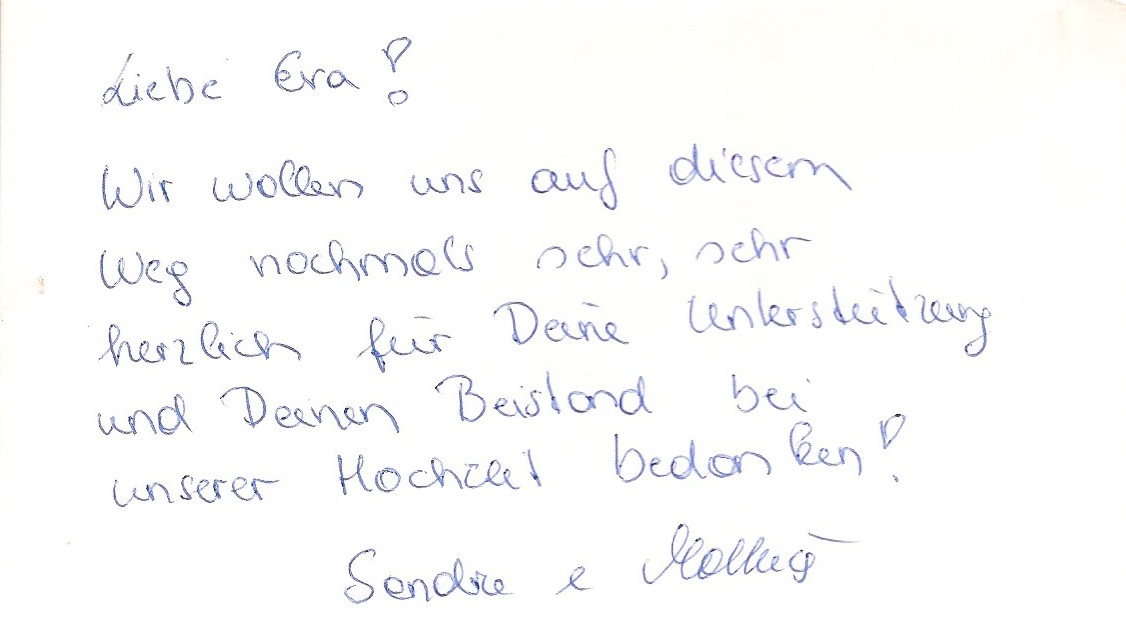 Liebe Eva!
Wir wollen uns auf diesem
Weg nochmals sehr, sehr
herzlich für Deine Unterstützung
und Deinen Beistand bei
unserer Hochzeit bedanken!
Sandra &